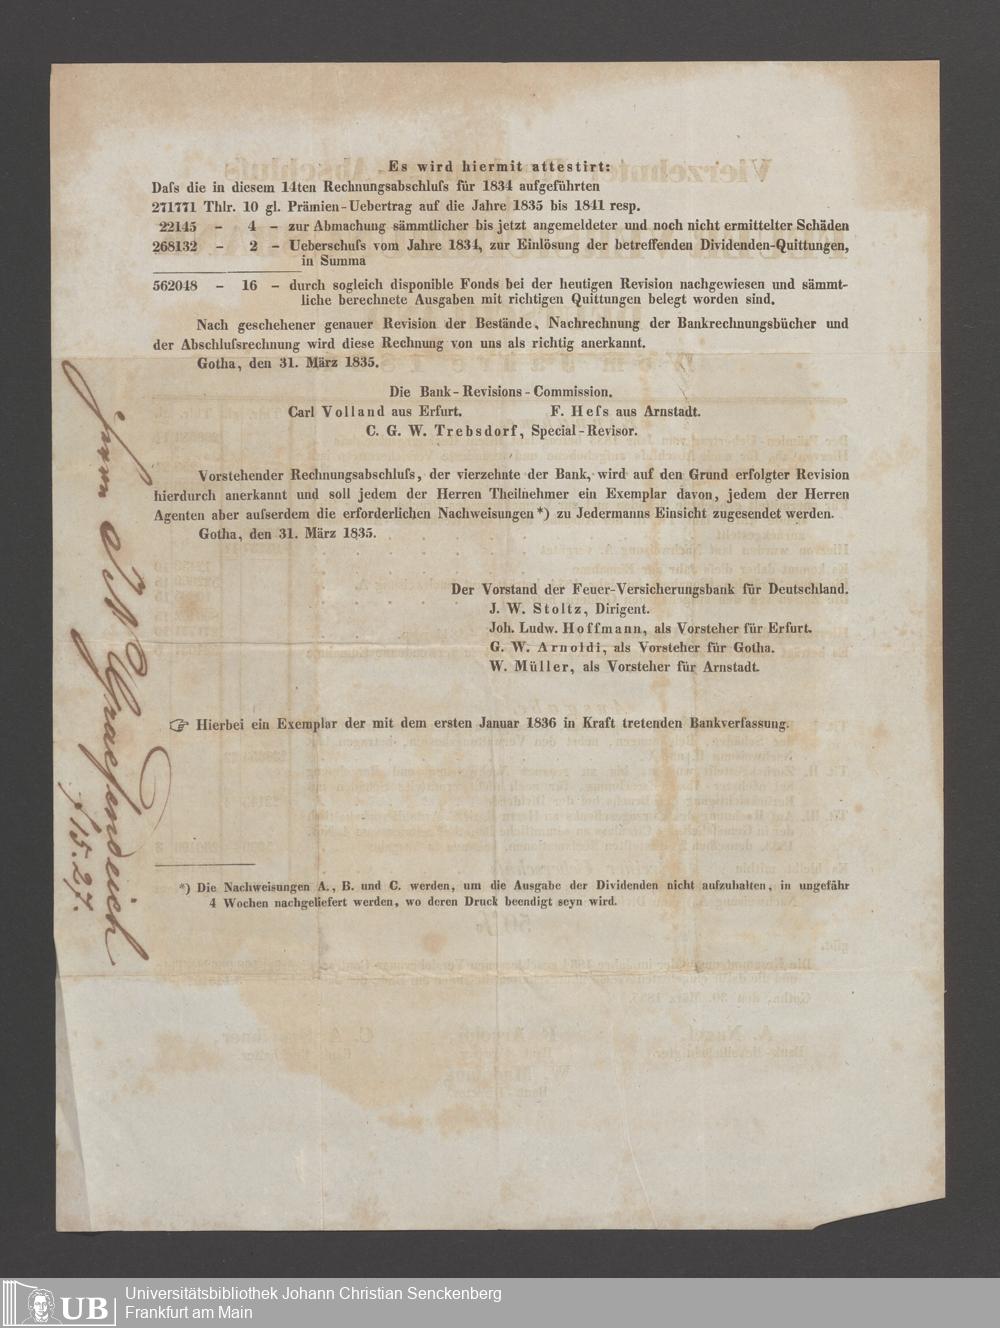 Es wird hiermit attestirt:
Daſs die in diesem 14ten Rechnungsabschluſs für 1834 aufgeführten
271771 Thlr. 10 gl. Prämien-Uebertrag auf die Jahre 1835 bis 1841 resp.
22145 – 4 – zur Abmachung sämmtlicher bis jetzt angemeldeter und noch nicht ermittelter Schäden
268132 – 2 – Ueberschuſs vom Jahre 1834, zur Einlösung der betreffenden Dividenden-Quittungen,
in Summa
562048 – 16 – durch sogleich disponible Fonds bei der heutigen Revision nachgewiesen und sämmt-
liche berechnete Ausgaben mit richtigen Quittungen belegt worden sind.
Nach geschehener genauer Revision der Bestände, Nachrechnung der Bankrechnungsbücher und
der Abschluſsrechnung wird diese Rechnung von uns als richtig anerkannt.
Gotha, den 31. März 1835.
Die Bank-Revisions-Commission.
Carl Volland aus Erfurt. F. Heſs aus Arnstadt.
C. G. W. Trebsdorf, Special-Revisor.
Vorstehender Rechnungsabschluſs, der vierzehnte der Bank, wird auf den Grund erfolgter Revision
hierdurch anerkannt und soll jedem der Herren Theilnehmer ein Exemplar davon, jedem der Herren
Agenten aber auſserdem die erforderlichen Nachweisungen*) zu Jedermanns Einsicht zugesendet werden.
Gotha, den 31. März 1835.
Der Vorstand der Feuer-Versicherungsbank für Deutschland.
J. W. Stoltz, Dirigent.
Joh. Ludw. Hoffmann, als Vorsteher für Erfurt.
G. W. Arnoldi, als Vorsteher für Gotha.
W. Müller, als Vorsteher für Arnstadt.
☞ Hierbei ein Exemplar der mit dem ersten Januar 1836 in Kraft tretenden Bankverfassung.
*) Die Nachweisungen A., B. und C. werden, um die Ausgabe der Dividenden nicht aufzuhalten, in ungefähr
4 Wochen nachgeliefert werden, wo deren Druck beendigt seyn wird.
Graefendeich
f 15.27.
UB
Universitätsbibliothek Johann Christian Senckenberg
Frankfurt am Main